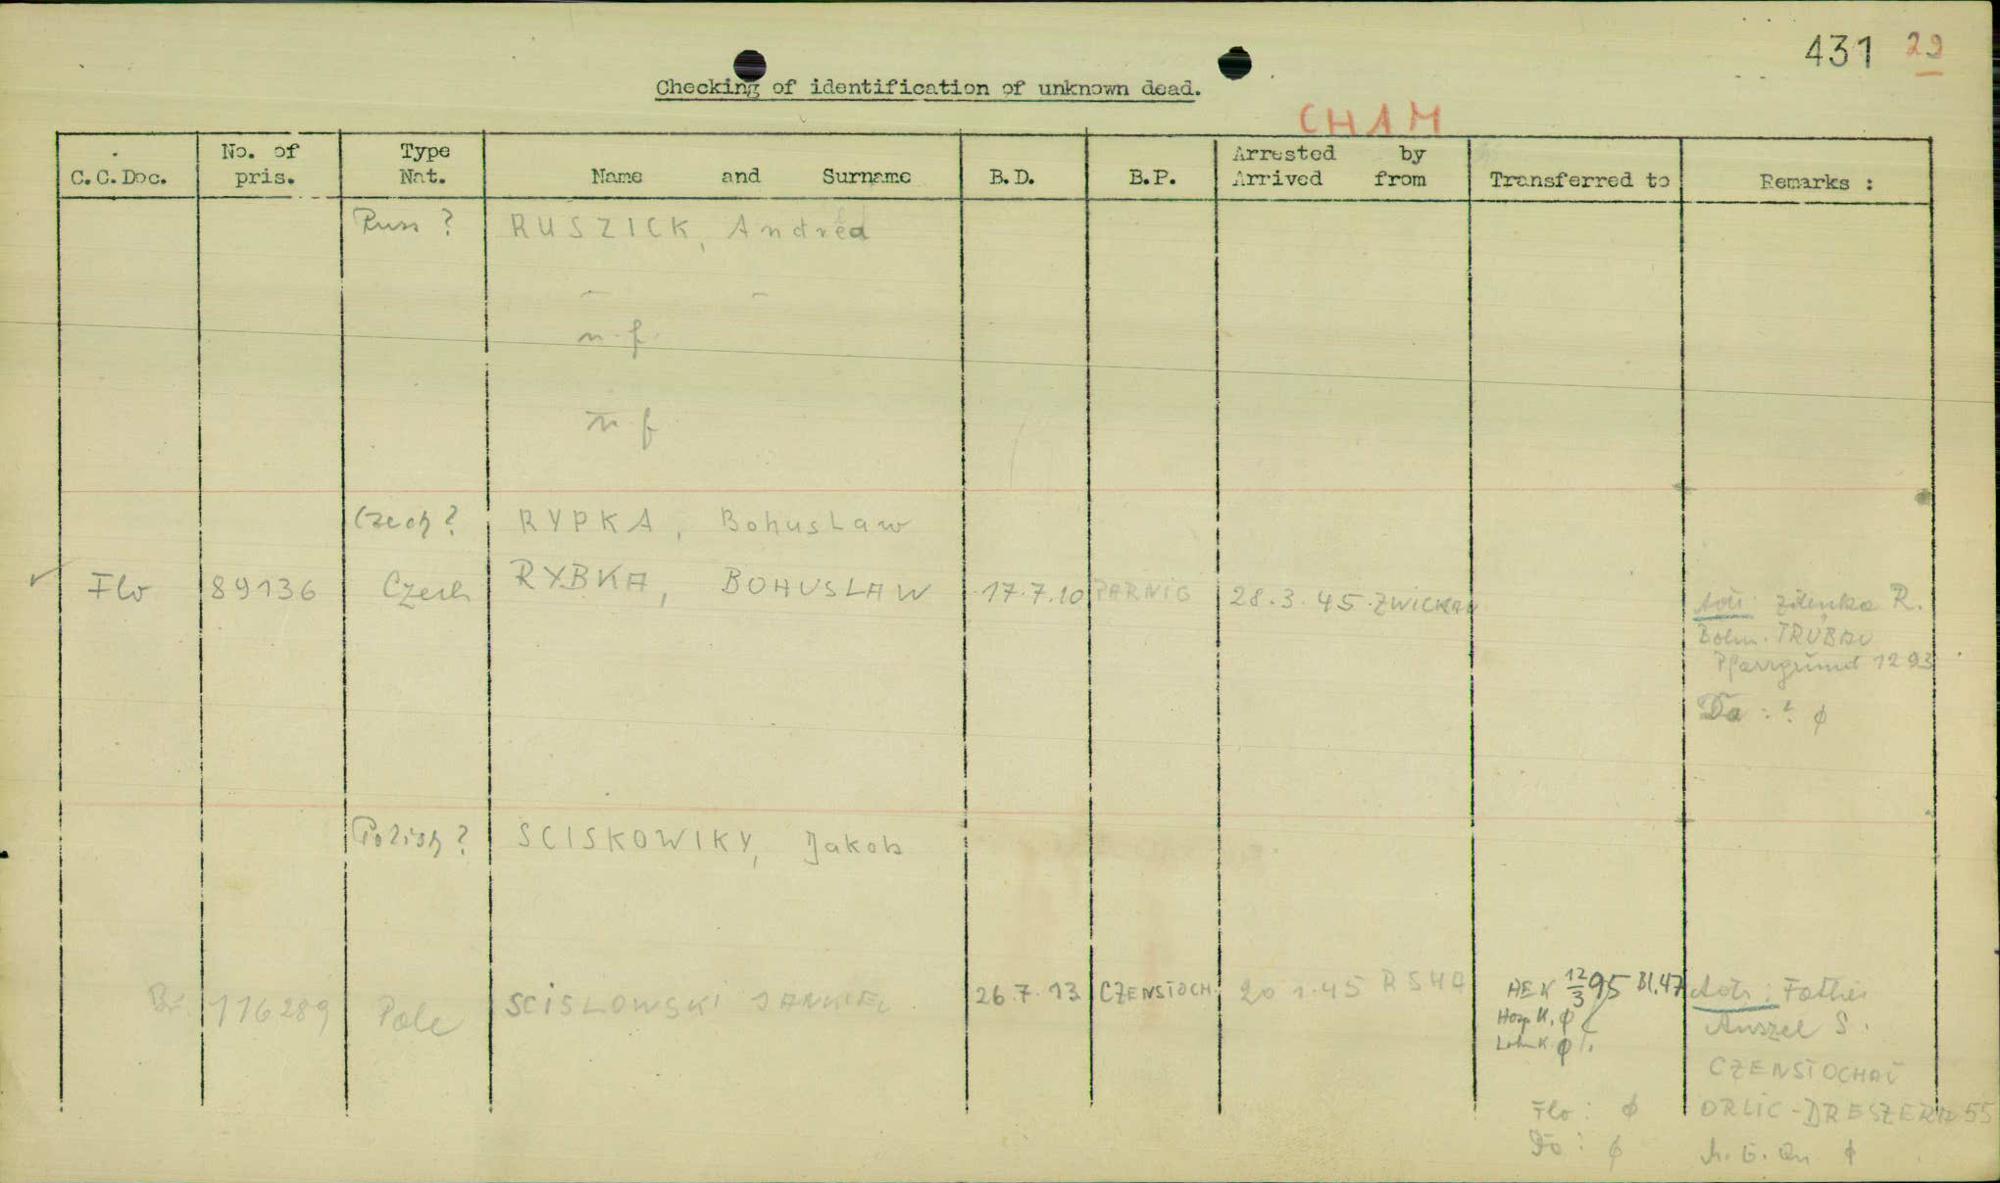 431 22
Checking of identification of unknown dead.
CHAM
C.C.Doc. No. of pris. Type Nat. Name and Surname B.D. B.P. Arrested by Arrived from Transferred to Remarks :
Russ ? RUSZICK, Andrea
n.f.
n.f.
Czech? RYPKA, Bohuslaw
Flo 89136 Czech RYBKA, BOHUSLAW 17.7.10 PARNIG 28.3.45 ZWICKAU Adr: Zdenka R.
Böhm. TRÜBAU
Pfarrgrund 1293
Da : ? ϕ
Polish? SCISKOWIKY, Jakob
Bu. 116289 Pole SCISLOWSKI JANKIEL 26.7.13 CZENSTOCH. 20.1.45 RSHA Bl.47 Adr: Father
Hosp K. ϕ Anszel S.
ϕ CZENSTOCHAU
Flo : ϕ ORLIC-DRESZERA 55
Da : ϕ ϕ